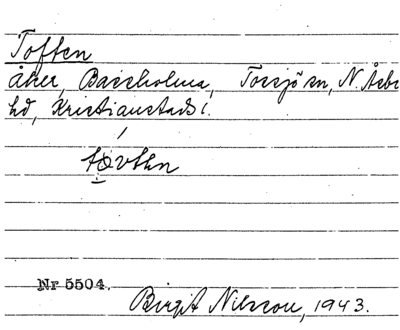 Toften
Åker, Bassholma, Torsjö sn, N. Åsbo
hd, Kristianstads l.
tåvtən
Nr 5504.
Birgit Nilsson, 1943.